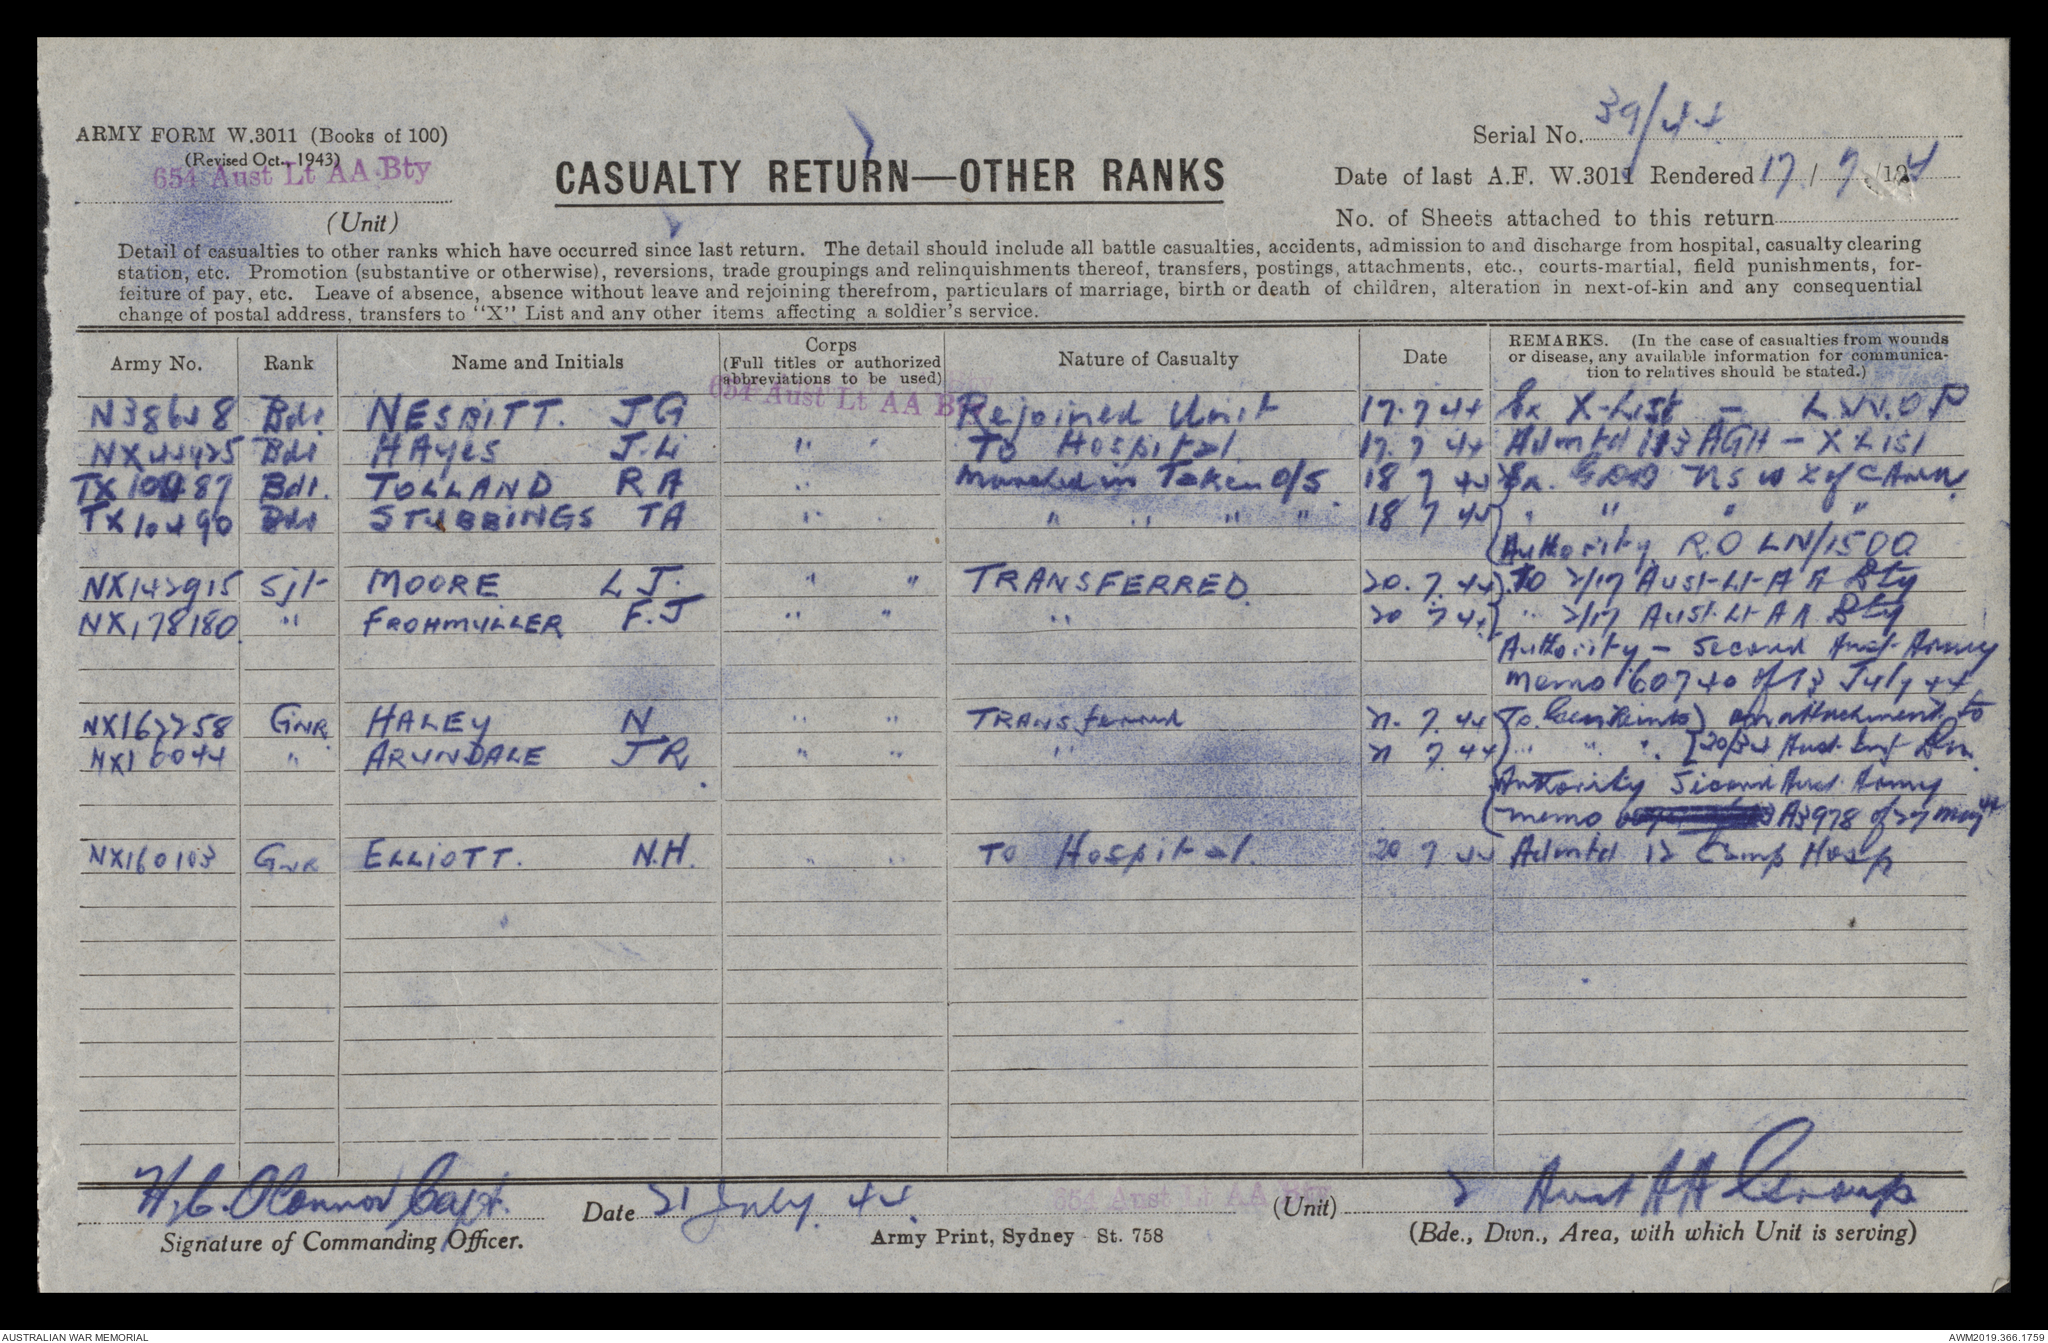 ARMY FORM W.3011 (Books of 100)
(Revised Oct., 1943)
654 Aust Lt AA Bty
(Unit)
CASUALTY RETURN—OTHER RANKS
Serial No. 39/44
Date of last A.F. W.3011 Rendered 17 / 7 /194
No. of Sheets attached to this return
Detail of casualties to other ranks which have occurred since last return. The detail should include all battle casualties, accidents, admission to and discharge from hospital, casualty clearing
station, etc. Promotion (substantive or otherwise), reversions, trade groupings and relinquishments thereof, transfers, postings, attachments, etc., courts-martial, field punishments, for-
feiture of pay, etc. Leave of absence, absence without leave and rejoining therefrom, particulars of marriage, birth or death of children, alteration in next-of-kin and any consequential
change of postal address, transfers to "X" List and any other items affecting a soldier's service.
Army No. Rank Name and Initials Corps (Full titles or authorized abbreviations to be used) Nature of Casualty Date REMARKS. (In the case of casualties from wounds or disease, any available information for communica- tion to relatives should be stated.)
Bdr. NESBITT. J G 654 Aust Lt AA Bty Rejoined Unit 17.7 44 Ex X-List -
Bdr HAYES " " To Hospital. 17.7 44 Admtd 113 AGH - X List
Bdr. TOLLAND R A " Marched in Taken O/S 18 7 44 Ex. GDD
TX10490 Bdr STUBBINGS TA " " " " " " 18 7 44 " " " "
Authority R.O LN/1500
NX142915 Sjt MOORE L J. " " TRANSFERRED. 20.7.44 To 2/17 Aust Lt A A Bty
NX178180 " FROHMULLER F.J " " " 20 7 44 " 2/17 Aust Lt A A Bty
Authority - Second Aust Army
memo 60740 of 13 July 44
NX162258 GNR. HALEY N " " TRANSferred 21.7.44 To on attachment to
" ARUNDALE J R. " " " 21 7.44 " " " Aust Inf Bn.
Authority Second Aust Army
memo A3978 of 27 May 44
NX160103 GNR ELLIOTT. N.H. " " TO Hospital. 20 7 44 Admtd 12 Camp Hosp
H.C. O'Connor Capt.
Signature of Commanding Officer.
Date 21 July. 44.
Army Print, Sydney - St. 758
654 Aust Lt AA Bty
(Unit)
2 Aust AA Group
(Bde., Divn., Area, with which Unit is serving)
AUSTRALIAN WAR MEMORIAL
AWM2019.366.1759